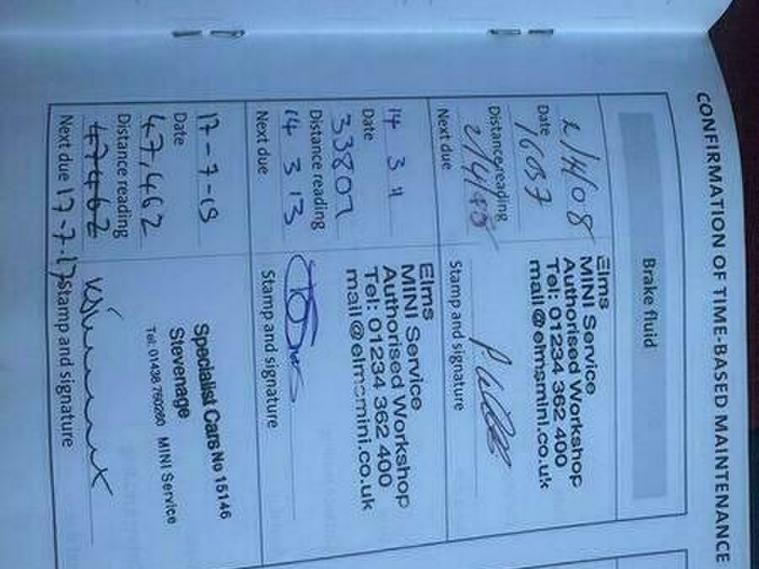 CONFIRMATION OF TIME-BASED MAINTENANCE
Brake fluid
2/4/08
Date
16057
Distance reading
Next due
Elms
MINI Service
Authorised Workshop
Tel: 01234 362 400
mail@elmsmini.co.uk
Stamp and signature
14 3 11
Date
33807
Distance reading
14 3 13
Next due
Elms
MINI Service
Authorised Workshop
Tel: 01234 362 400
mail@elmsmini.co.uk
Stamp and signature
17-7-15
Date
47,462
Distance reading
47462
Next due 17-7-17
Specialist Cars No 15146
Stevenage
Tel: 01438 760260 MINI Service
Stamp and signature